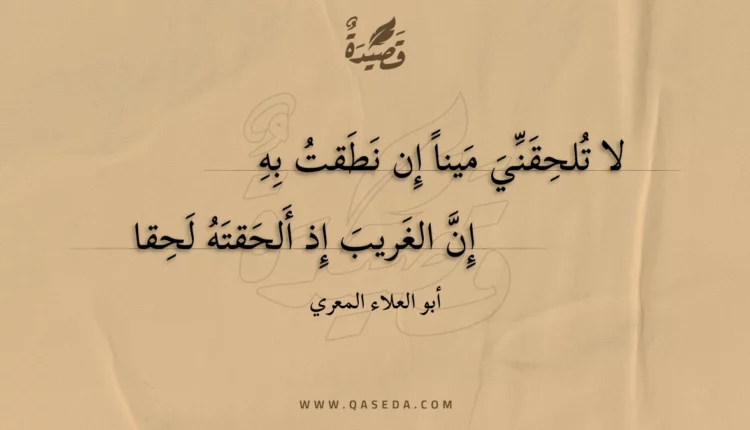 قَصِيدَةٌ
لا تُلحِقَنِّيَ مَيناً إِن نَطَقتُ بِهِ
إِنَّ الغَريبَ إِذ أَلحَقتَهُ لَحِقا
أبو العلاء المعري
WWW.QASEDA.COM